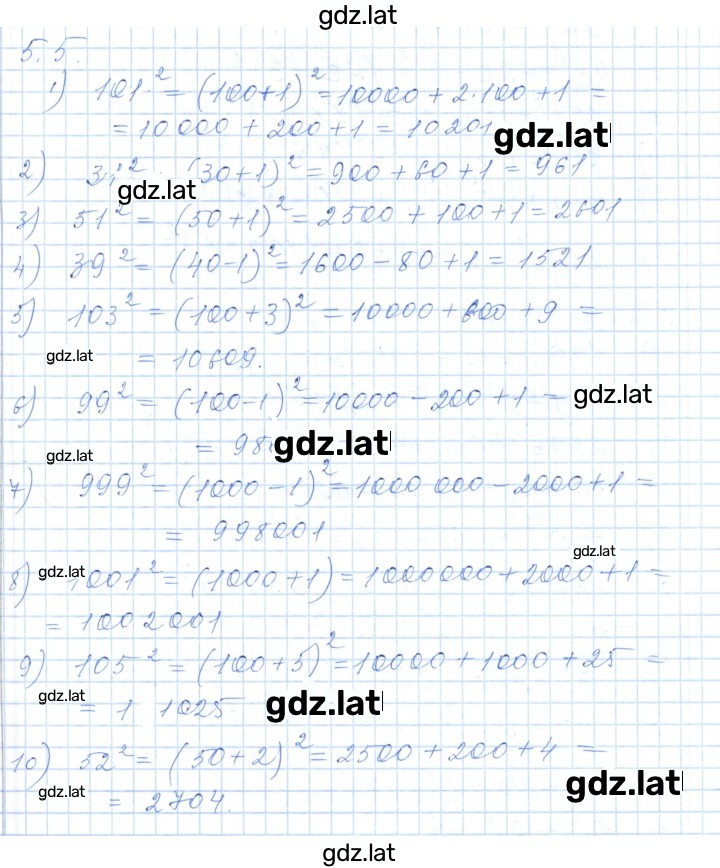 gdz.lat
5.5.
1) 101² = (100+1)² = 10000 + 2·100 + 1 =
= 10 000 + 200 + 1 = 10201
gdz.lat
2) 31² (30+1)² = 900 + 60 + 1 = 961
gdz.lat
3) 51² = (50+1)² = 2500 + 100 + 1 = 2601
4) 39² = (40-1)² = 1600 - 80 + 1 = 1521
5) 103² = (100+3)² = 10000 + 600 + 9 =
gdz.lat = 10609.
6) 99² = (100-1)² = 10000 - 200 + 1 = gdz.lat
= 98 gdz.lat
gdz.lat
7) 999² = (1000-1)² = 1000 000 - 2000 + 1 =
= 998001
gdz.lat
8) gdz.lat 1001² = (1000+1) = 1000000 + 2000 + 1 =
= 100 2001
9) 105² = (100+5)² = 10000 + 1000 + 25 =
gdz.lat = 1 1025 gdz.lat
10) 52² = (50+2)² = 2500 + 200 + 4 =
gdz.lat = 2704. gdz.lat
gdz.lat